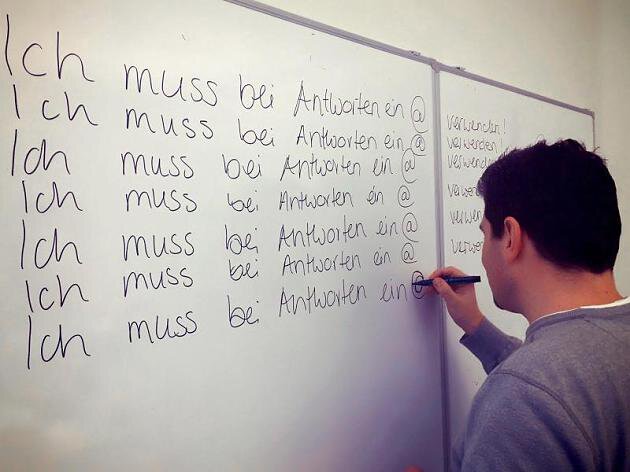 Ich muss bei Antworten ein @ verwenden!
Ich muss bei Antworten ein @ verwenden!
Ich muss bei Antworten ein @ verwend
Ich muss bei Antworten ein @ verwe
Ich muss bei Antworten ein @ verwen
Ich muss bei Antworten ein @ verwe
Ich muss bei Antworten ein @